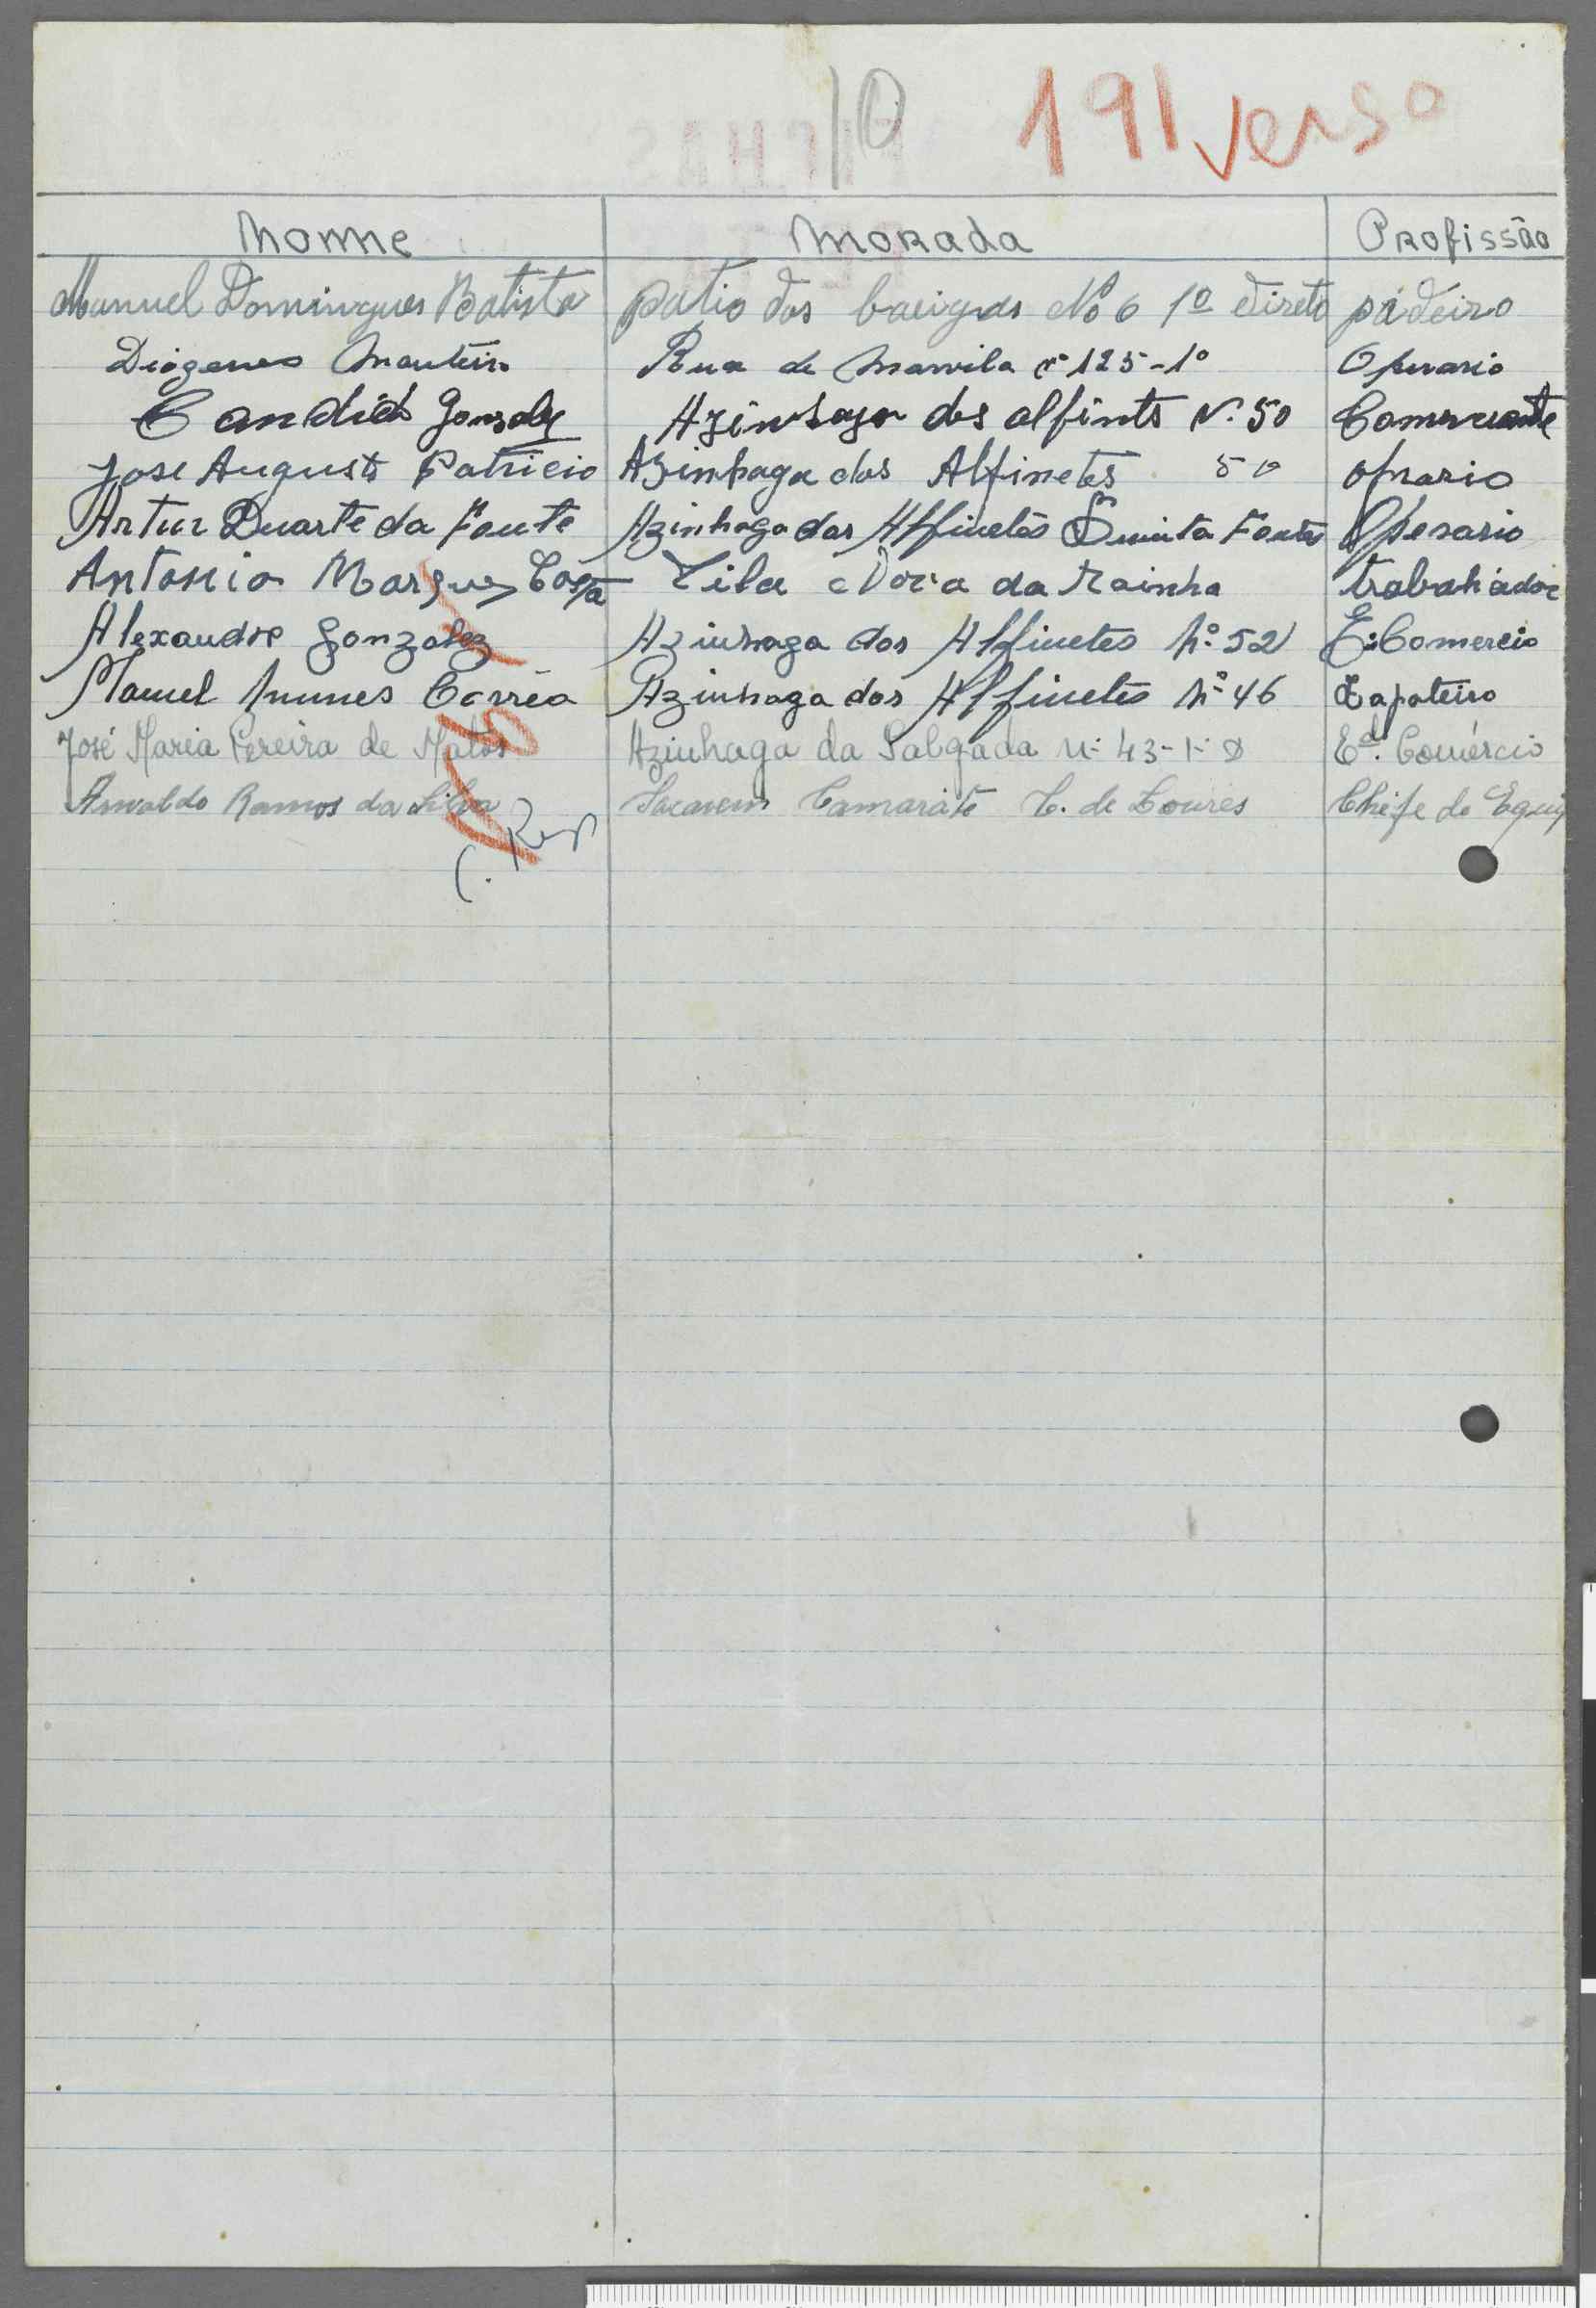 10 191 verso
Nome Morada Profissão
Manuel Domingues Batista patio dos No 6 1º direto pádeiro
Diogenes Monteiro Rua de Marvila nº 125-1º Operario
Candido Gonzalez Azinhaga dos alfints Nº 50 Comerciante
Jose Augusto Patricio Azinhaga dos Alfinetes 50 oprario
Artur Duarte da Fonte Azinhaga dos Alfinetes Quinta Fontes Operario
Antonio Marques Costa Vila Nova da Rainha trabahador
Alexandre Gonzalez Azinhaga dos Alfinetes Nº 52 E: Comercio
Manuel Nunes Corrêa Azinhaga dos Alfinetes Nº 46 Zapateiro
José Maria Pereira de Matos Azinhaga da Salgada Nº 43-1º D Edº. Comércio
Arnaldo Ramos da Silva Sacavem Camarate C. de Loures Chefe de Equip